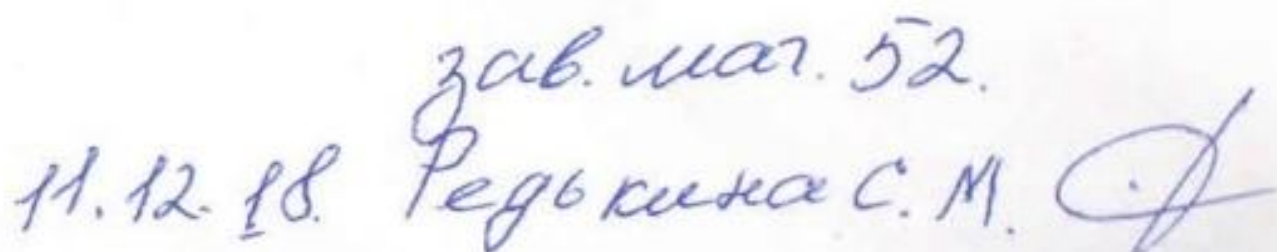 зав. маг. 52.
11.12.18. Редькина С. М.